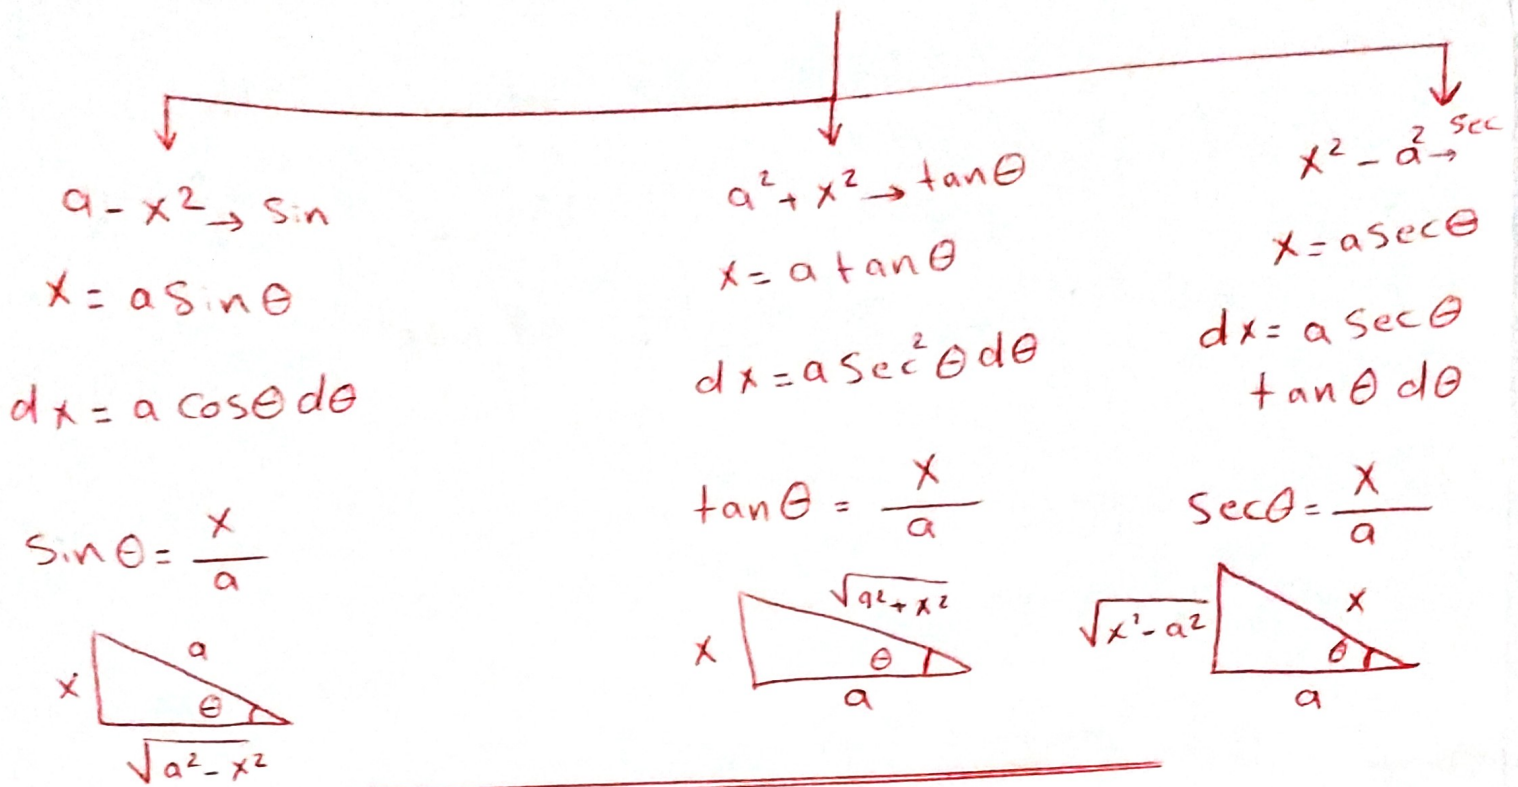 a - x² → sin
x = a sin θ
dx = a cosθ dθ
sin θ = x/a
a
x
θ
√(a² - x²)
a² + x² → tan θ
x = a tan θ
dx = a sec² θ dθ
tan θ = x/a
√(a² + x²)
x
θ
a
x² - a² → sec
x = a sec θ
dx = a sec θ
tan θ dθ
sec θ = x/a
√(x² - a²)
x
θ
a